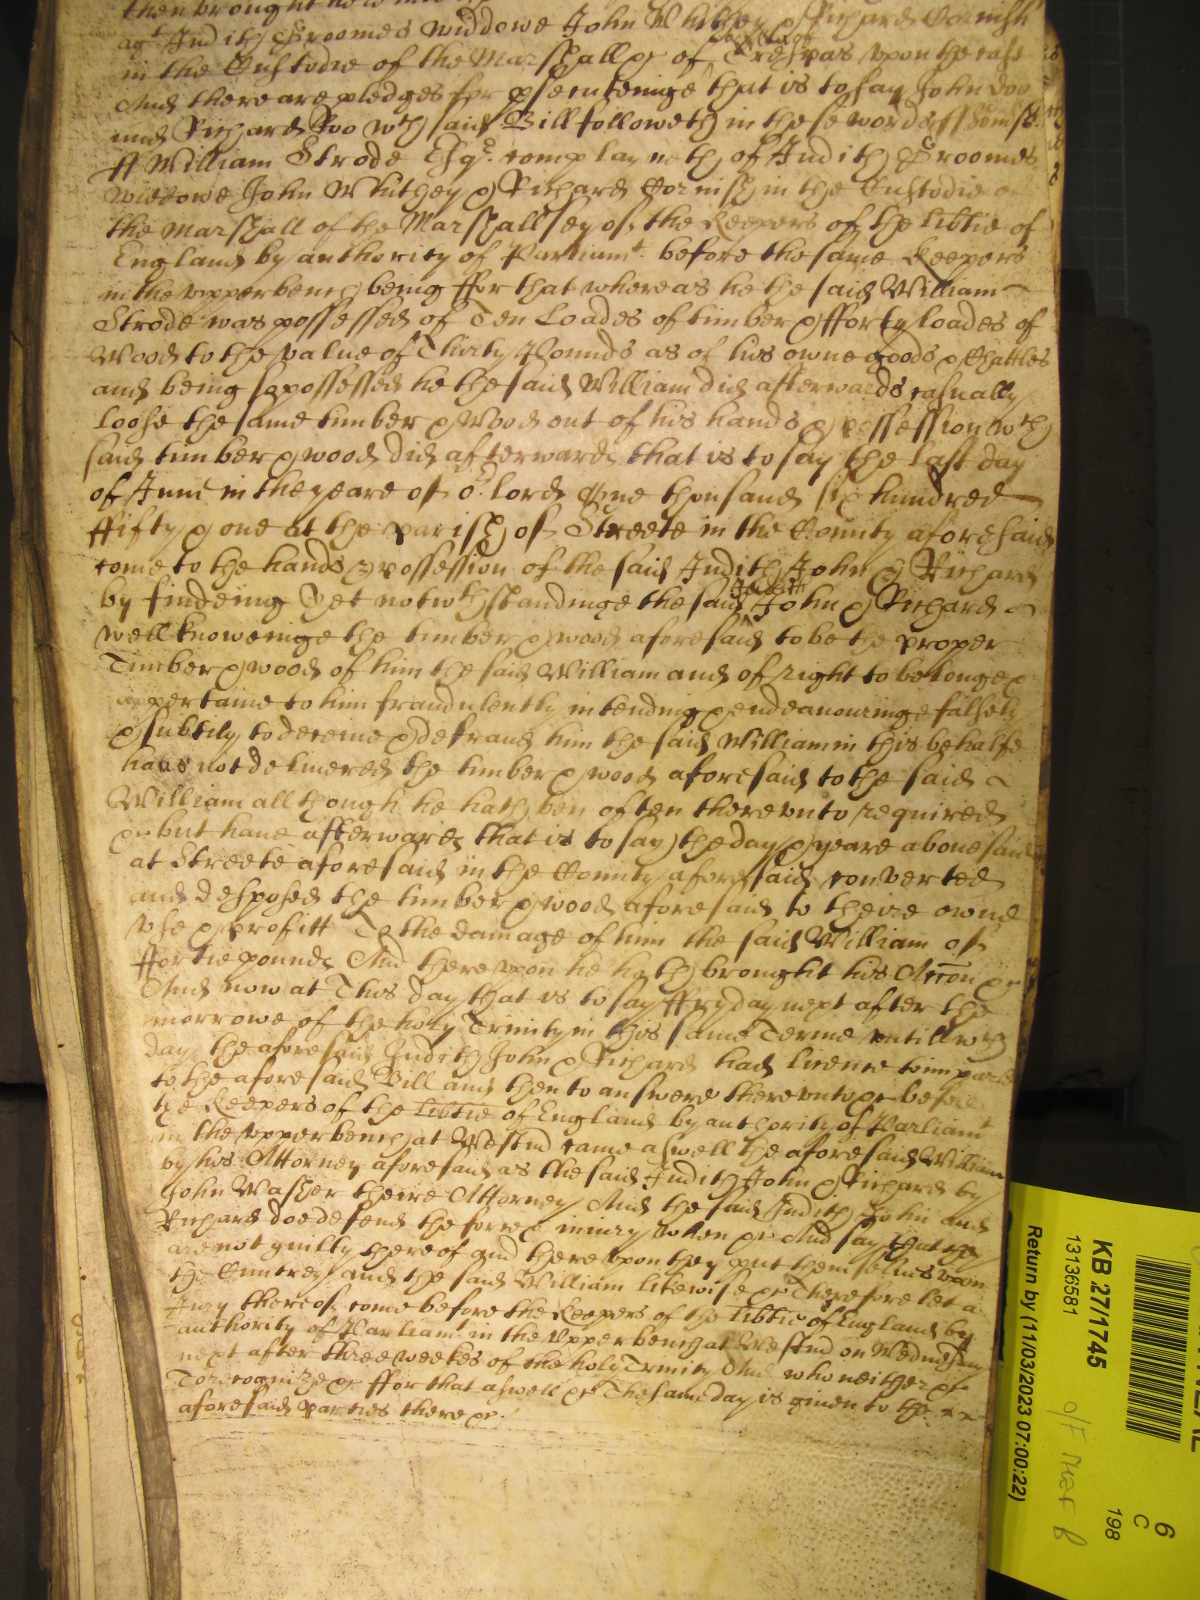 then brought
agt Judith Groomes widdowe John Whithey & Richard Cornish
in the Custodie of the Marshall &c of Trespas upon the case
And there are pledges for psecuteinge that is to say John Doo
and Richard Roo wch said Bill followeth in these words ss Somst
ss William Strode Esqr. complayneth of Judith Groomes
widdowe John Whithey & Richard Cornish in the Custodie of
the Marshall of the Marshallsey of the Keepers of the libtie of
England by authority of Parliamt. before the same Keepers
in the upper bench being ffor that whereas he the said William
Strode was possessed of Ten Loades of timber & fforty loades of
Wood to the value of Thirty Pounds as of his owne goods & Chattles
and being so possessed he the said William did afterwards casually
loose the same timber & Wood out of his hands & possession wch
said timber & wood did afterwards that is to say the last day
of June in the yeare of or. lord One thousand six hundred
ffifty & one at the parish of Streete in the County aforesaid
come to the hands & possession of the said Judith John & Richard
by findeing Yet notwthstandinge the said Judith John & Richard
well knoweinge the timber & wood aforesaid to be the proper
Timber & wood of him the said William and of right to belonge &
appertaine to him fraudulently intending & endeavouringe falsely
& subtily to deceive & defraud him the said William in this behalfe
have not delivered the timber & wood aforesaid to the said
William all though he hath ben often thereunto required
&c but have afterwards that is to say the day & yeare abovesaid
at Streete aforesaid in the County aforesaid converted
and desposed the timber & wood aforesaid to theire owne
use & profitt To the damage of him the said William of
ffortie pounds And thereupon he hath brought his Accon &c
And now at This day that is to say ffryday next after the
morrowe of the holy Trinity in this same Terme untill wch
day the aforesaid Judith John & Richard had licence to imparle
to the aforesaid Bill and then to answere thereunto &c before
the Keepers of the libtie of England by authority of Parliamt
in the upper bench at Westmr came aswell the aforesaid William
by his Attorney aforesaid as the said Judith John & Richard by
John Washer theire Attorney And the said Judith John and
Richard doe defend the force & iniury when &c And say that they
are not guilty thereof and thereupon they put themselves upon
the Cuntrey and the said William likewise &c Therefore let a
Jury thereof come before the Keepers of the libtie of England by
authority of Parliamt in the Upper bench at Westmr on Wednesday
next after three weekes of the holy Trinity And who neither &c
To recognize &c ffor that aswell &c The same day is given to the
aforesaid parties there &c.
KB 27/1745
13136581
Return by (11/03/2023 07:00:22)
6
C
198